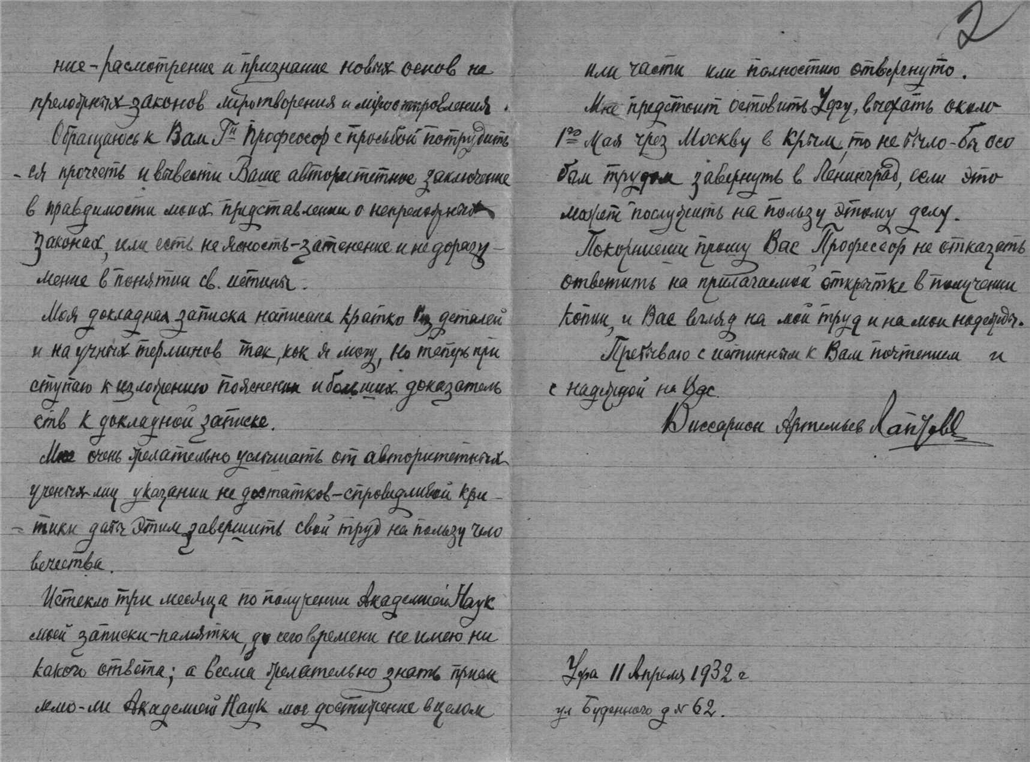 2
ние-расмотрение и признание новых основ не
преложных законов миротворения и мироотправления.
Обращаюсь к Вам Гн Профессор с прозьбой потрудить
-ся прочесть и вывести Ваше авторитетное заключение
в правдимости моих представлении о непреложных
законах, или есть не ясность-затенение и недоразу-
мение в понятии св. истины.
Моя докладная записка написана кратко без деталей
и научных терминов так, как я могу, но теперь при
ступаю к изложению пояснении и больших доказатель
ств к докладной записке.
Мне очень желательно услышать от авторитетных
ученых лиц указании не достатков-справидливой кри-
-тики дабы этим завершить свой труд на пользу чело
вечества.
Истекло три месяца по получении Академией Наук
моей записки-памятки, до сего времени не имею ни
какого ответа; а весма желательно знать прием
лемо-ли Академией Наук мое достижение в целом
или части или полностию отвергнуто.
Мне предстоит оставить Уфу, выехать около
1го Мая чрез Москву в Крым, то не было-бы осо
бым трудом завернуть в Ленинград, если это
может послужить на пользу этому делу.
Покорнеиши прошу Вас Профессор не отказать
ответить на прилагаемой открытке в получении
копии, и Вас взгляд на мой труд и на мои надежды.
Пребываю с истинным к Вам почтением и
с надеждой на Вас.
Виссарион Артемьев Лаптев
Уфа 11 Апреля 1932 г
ул Буденного д № 62.